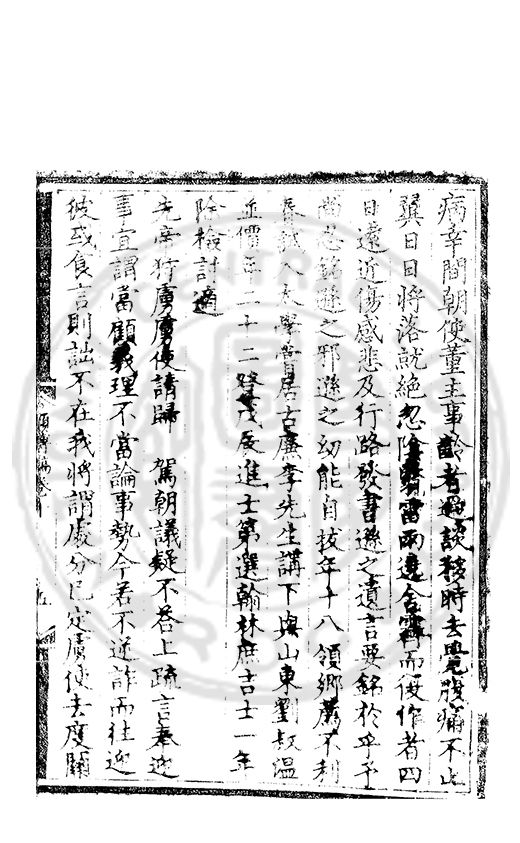 病幸間朝使董主事齡者過談移時去覺腹痛不止
翼日日將落就絕忽陰雷雨遶舍霽而復作者四
日遠近傷感悲及行路發書遜之遺言要銘於乎予
尚忍銘遜之邪遜之幼能自拔年十八領鄉薦不利
泰試入太學嘗居古廉李先生講下與山東劉叔溫
並價年二十二登戊辰進士第選翰林庶吉士一年
除檢討適
先帝狩虜虜使請歸 駕朝議疑不荅上疏言奉迎
事宜謂當顧義理不當論事勢今若不逆詐而往迎
彼或食言則詘不在我將謂處分已定虜使去度關